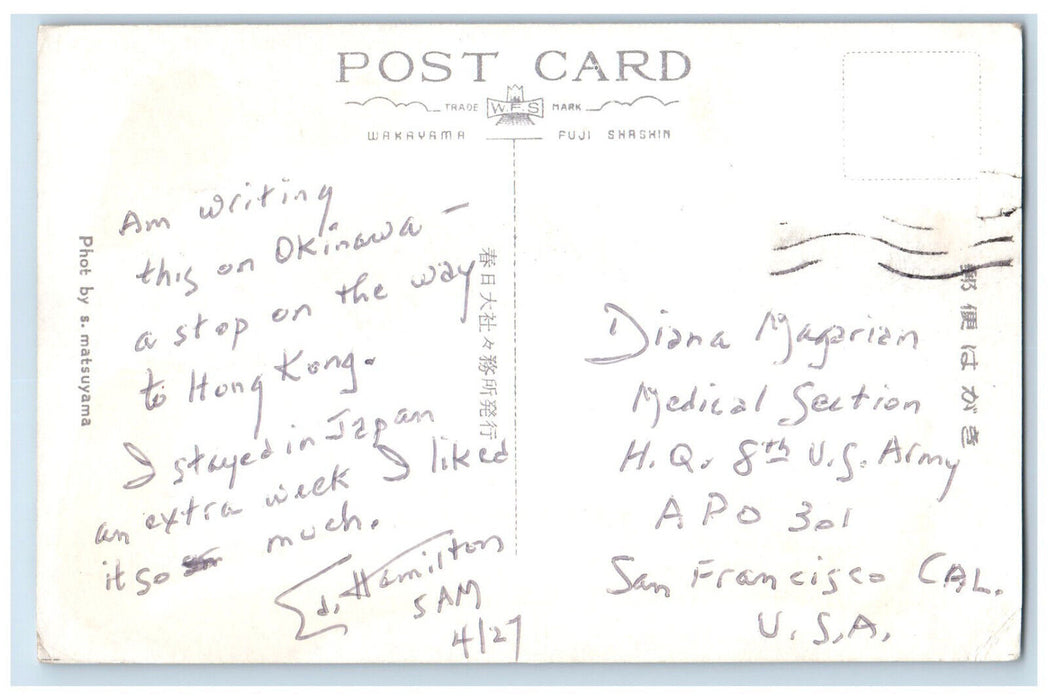 POST CARD
TRADE W.F.S MARK
WAKAYAMA FUJI SHASHIN
Am writing
this on Okinawa –
a stop on the way
to Hong Kong.
I stayed in Japan
an extra week I liked
it so much.
Ed. Hamilton
5 AM
4/27
Phot by s. matsuyama
春日大社々務所発行
郵便はがき
Diana Magarian
Medical Section
H.Q. 8th U.S. Army
APO 301
San Francisco CAL.
U.S.A.